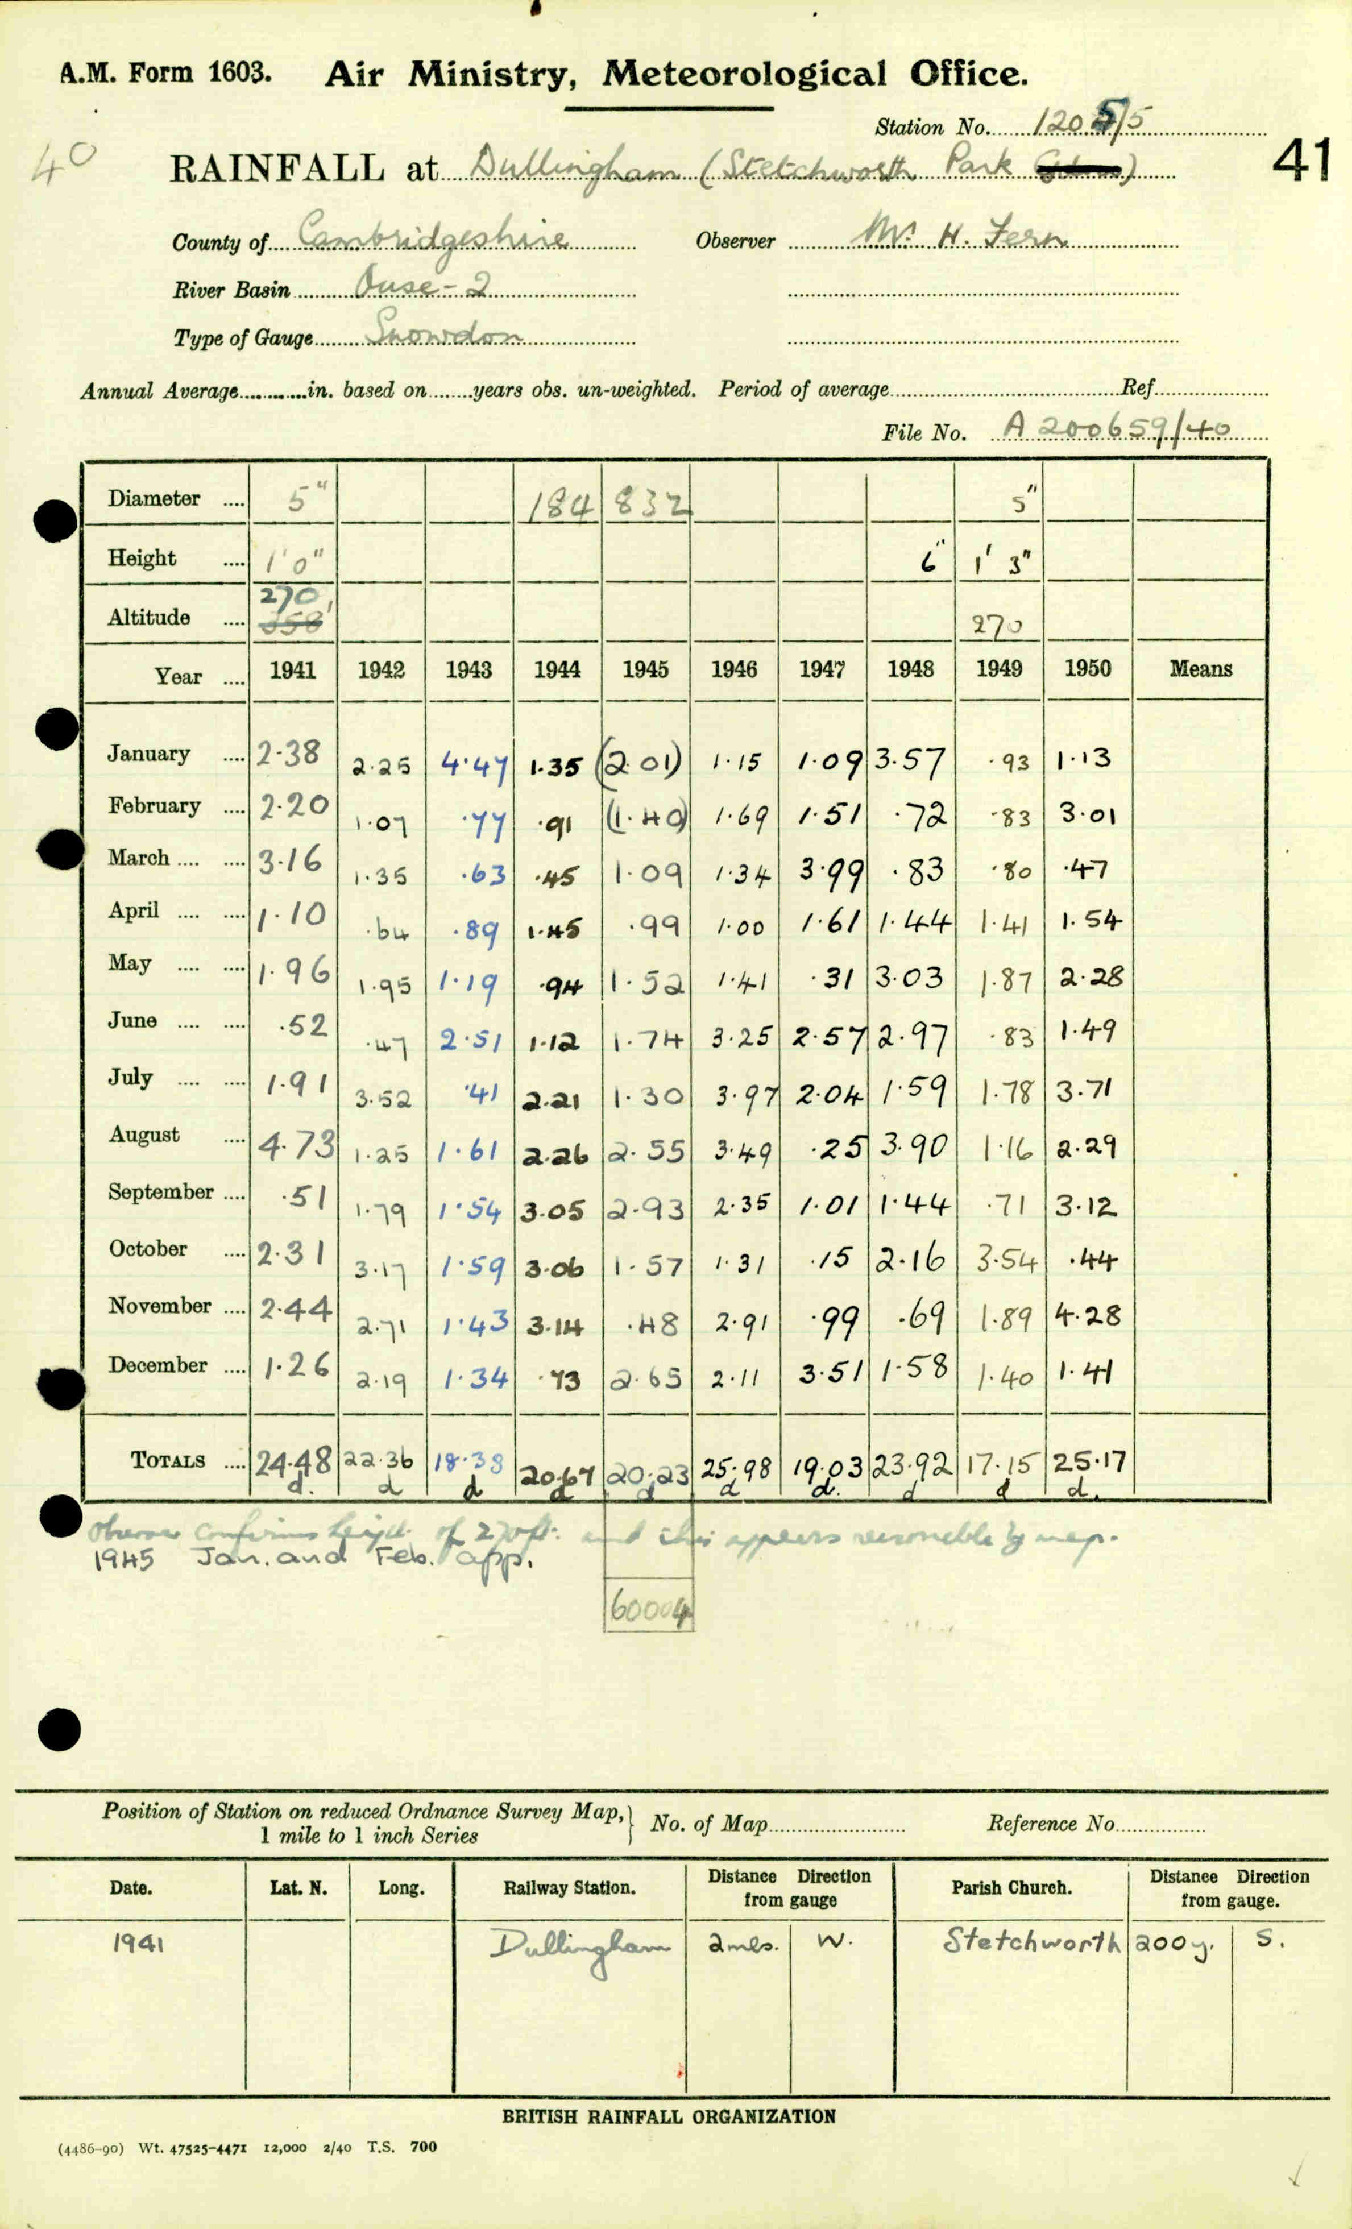 A.M. Form 1603. Air Ministry, Meteorological Office.
Station No. 1205/5
40
41
RAINFALL at Dullingham (Stetchworth Park )
County of Cambridgeshire Observer Mr. H. Fern
River Basin Ouse-2
Type of Gauge Snowdon
Annual Average in. based on years obs. un-weighted. Period of average Ref
File No. A 200659/40
Diameter 5" 184 832 5"
Height 1'0" 6" 1' 3"
Altitude 270 358' 270
Year 1941 1942 1943 1944 1945 1946 1947 1948 1949 1950 Means
January 2.38 2.25 4.47 1.35 (2.01) 1.15 1.09 3.57 .93 1.13
February 2.20 1.07 .77 .91 (1.40) 1.69 1.51 .72 .83 3.01
March 3.16 1.35 .63 .45 1.09 1.34 3.99 .83 .80 .47
April 1.10 .64 .89 1.45 .99 1.00 1.61 1.44 1.41 1.54
May 1.96 1.95 1.19 .94 1.52 1.41 .31 3.03 1.87 2.28
June .52 .47 2.51 1.12 1.74 3.25 2.57 2.97 .83 1.49
July 1.91 3.52 .41 2.21 1.30 3.97 2.04 1.59 1.78 3.71
August 4.73 1.25 1.61 2.26 2.55 3.49 .25 3.90 1.16 2.29
September .51 1.79 1.54 3.05 2.93 2.35 1.01 1.44 .71 3.12
October 2.31 3.17 1.59 3.06 1.57 1.31 .15 2.16 3.54 .44
November 2.44 2.71 1.43 3.14 .48 2.91 .99 .69 1.89 4.28
December 1.26 2.19 1.34 .73 2.65 2.11 3.51 1.58 1.40 1.41
TOTALS 24.48 22.36 18.38 20.67 20.23 25.98 19.03 23.92 17.15 25.17
d. d d d d d d. d d d.
Observer confirms height of 270ft. and this appears reasonable by map.
1945 Jan. and Feb. app.
60004
Position of Station on reduced Ordnance Survey Map, } No. of Map Reference No
1 mile to 1 inch Series
Date. Lat. N. Long. Railway Station. Distance Direction from gauge Parish Church. Distance Direction from gauge.
1941 Dullingham 2mls. W. Stetchworth 200y. S.
BRITISH RAINFALL ORGANIZATION
(4486-90) Wt. 47525-4471 12,000 2/40 T.S. 700